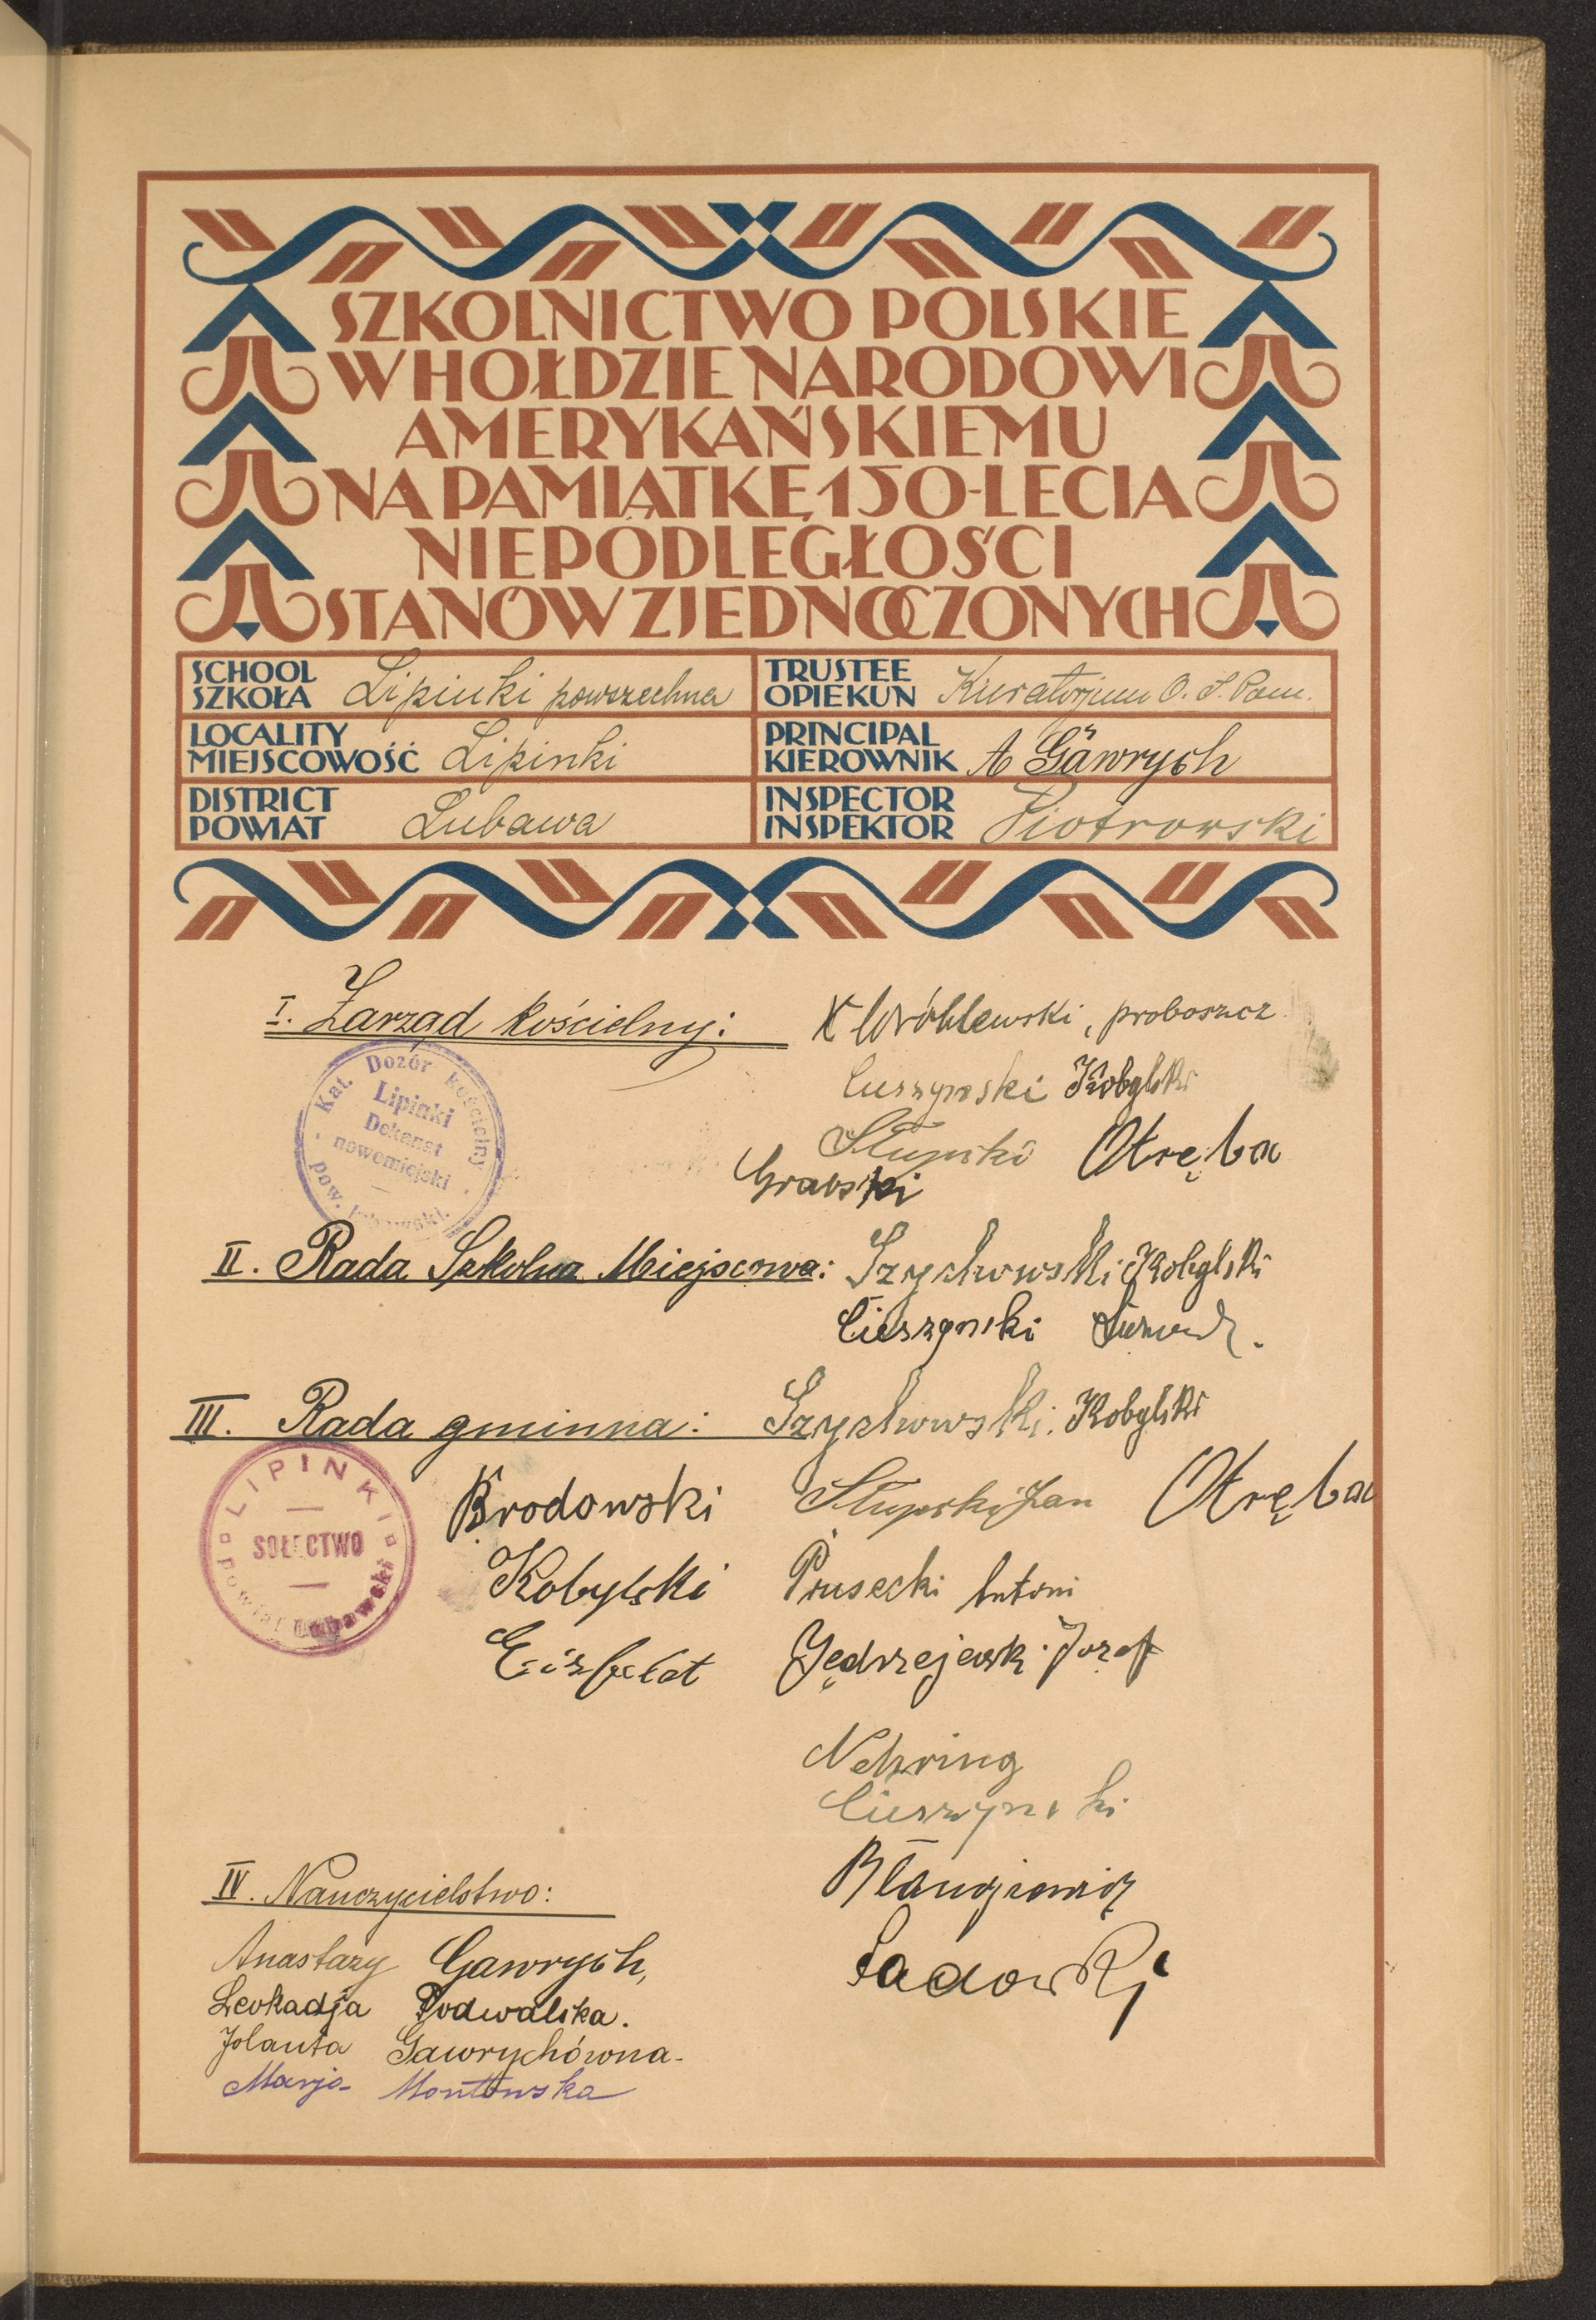 SZKOLNICTWO POLSKIE
W HOŁDZIE NARODOWI
AMERYKAŃSKIEMU
NA PAMIĄTKĘ 150-LECIA
NIEPODLEGŁOŚCI
STANÓW ZJEDNOCZONYCH
SCHOOL
SZKOŁA Lipinki powszechna
TRUSTEE
OPIEKUN Kuratorjum O. S. Pom.
LOCALITY
MIEJSCOWOŚĆ Lipinki
PRINCIPAL
KIEROWNIK A Gawrych
DISTRICT
POWIAT Lubawa
INSPECTOR
INSPEKTOR Piotrowski
I. Zarząd kościelny: X Wróblewski, proboszcz
Kat. Dozór kościelny
Lipinki
Dekanat
nowomiejski
pow. lubawski.
Cieszynski Kobylski
Słupski Otręba
Grabski
II. Rada Szkolna Miejscowa: Szychowski Kobylski
Cieszynski
III. Rada gminna: Szychowski. Kobylski
LIPINKI
SOŁECTWO
powiat lubawski
Brodowski Słupski Jan Otręba
Kobylski Prusecki Antoni
Jędrzejewski Jozef
Nehring
Cieszynski
IV. Nauczycielstwo:
Anastazy Gawrych,
Sadowski
Leokadja Podwalska.
Jolanta Gawrychówna.
Marja Montowska